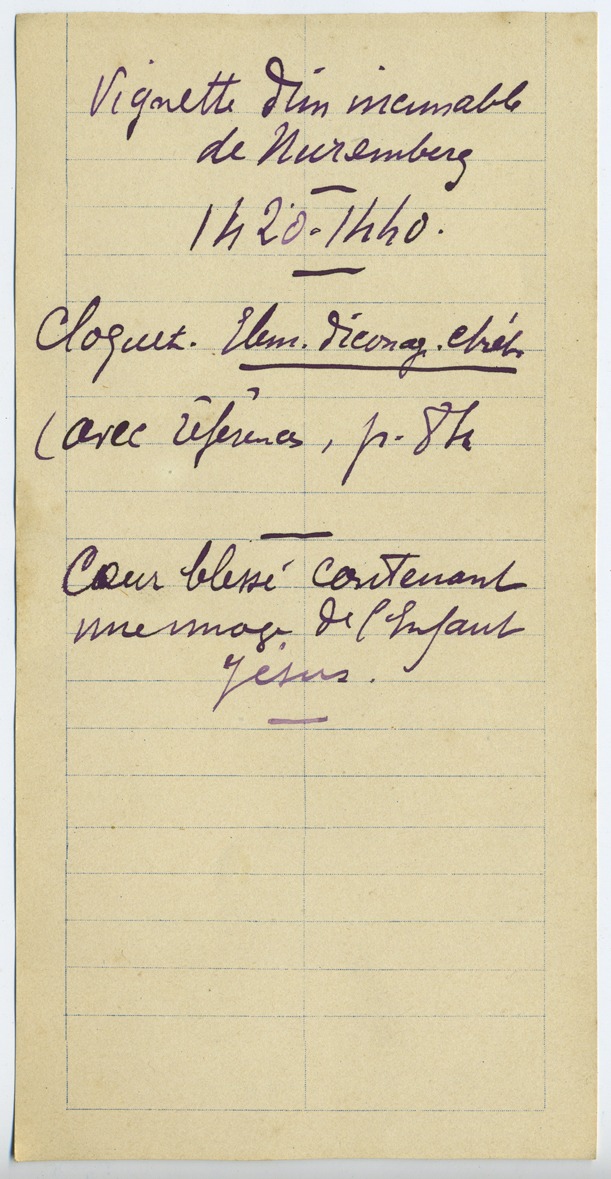 Vignette d'un incunable
de Nuremberg
1420-1440.
Cloquet. Elem. d'iconog. chrét.
(avec références, p. 84
Cœur blessé contenant
une image de l'Enfant
Jésus.